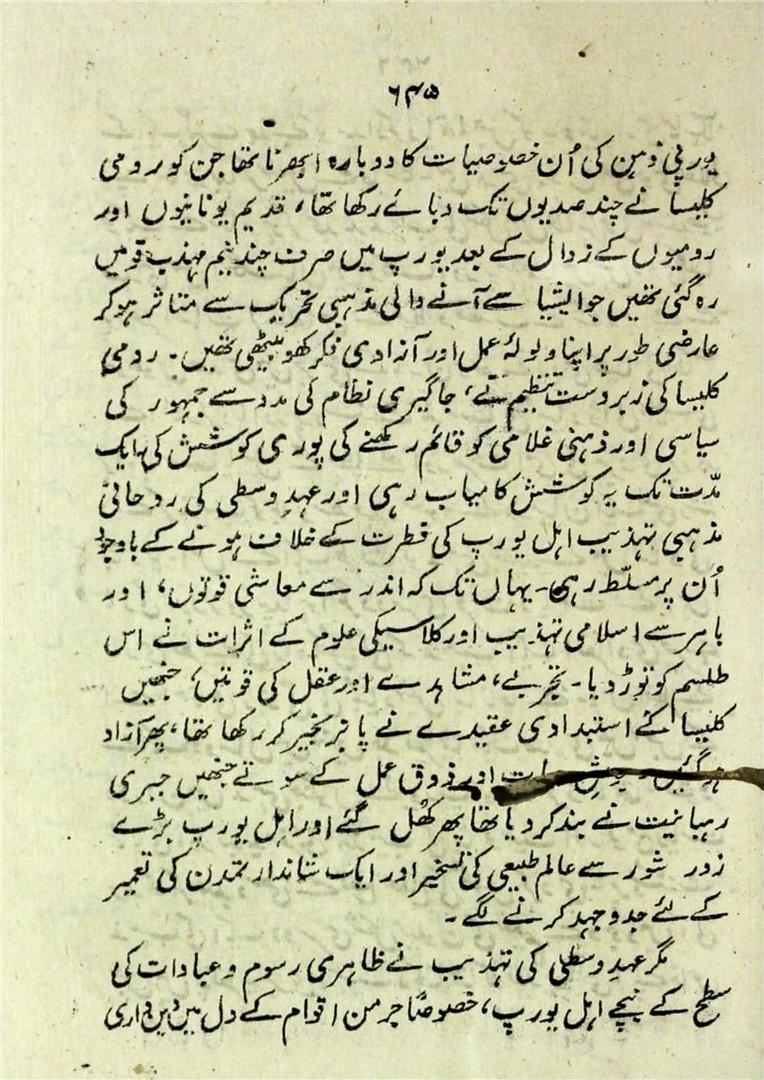 ۶۴۵
یورپی ذہن کی اُن خصوصیات کا دوبارہ ابھرنا تھا جن کو رومی
کلیسا نے چند صدیوں تک دبائے رکھا تھا، قدیم یونانیوں اور
رومیوں کے زوال کے بعد یورپ میں صرف چند نیم مہذب قومیں
رہ گئی تھیں جو ایشیا سے آنے والی مذہبی تحریک سے متاثر ہو کر
عارضی طور پر اپنا ولولۂ عمل اور آزادی فکر کھو بیٹھی تھیں۔ رومی
کلیسا کی زبردست تنظیم نے، جاگیری نظام کی مدد سے جمہور کی
سیاسی اور ذہنی غلامی کو قائم رکھنے کی پوری کوشش کی۔ ایک
مدّت تک یہ کوشش کامیاب رہی اور عہدِ وسطی کی روحانی
مذہبی تہذیب اہل یورپ کی فطرت کے خلاف ہونے کے باوجود
اُن پر مسلّط رہی۔ یہاں تک کہ اندر سے معاشی قوتوں، اور
باہر سے اسلامی تہذیب اور کلاسیکی علوم کے اثرات نے اس
طلسم کو توڑ دیا۔ تجربے، مشاہدے اور عقل کی قوتیں، جنھیں
کلیسا کے استبدادی عقیدے نے پابزنجیر کر رکھا تھا، پھر آزاد
ہوگئیں اور ذوق عمل کے سوتے جنھیں جبری
رہبانیت نے بند کر دیا تھا پھر کھُل گئے اور اہل یورپ بڑے
زور شور سے عالم طبیعی کی تسخیر اور ایک شاندار تمدن کی تعمیر
کے لئے جدوجہد کرنے لگے۔
مگر عہدِ وسطٰی کی تہذیب نے ظاہری رسوم و عبادات کی
سطح کے نیچے اہل یورپ، خصوصًا جرمن اقوام کے دل میں دین داری